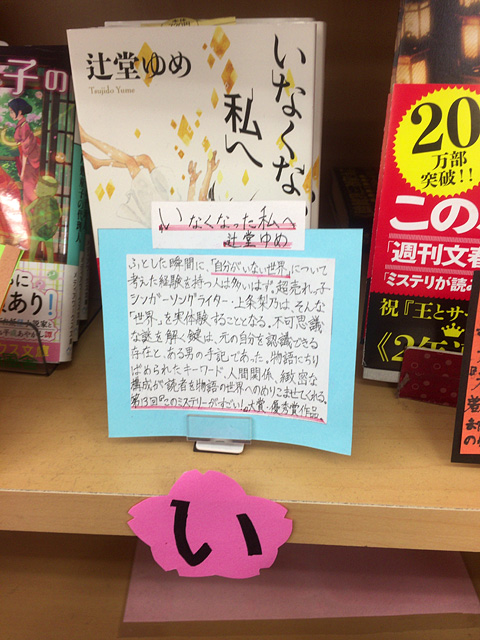 子の
辻堂ゆめ
Tsujido Yume
いなくな
私へ
いなくなった私へ
辻堂ゆめ
ふとした瞬間に、「自分がいない世界」について
考えた経験を持つ人は多いはず。超売れっ子
シンガーソングライター・上条梨乃は、そんな
「世界」を実体験することとなる。不可思議
な謎を解く鍵は、元の自分を認識できる
存在と、ある男の手記であった。物語にちり
ばめられたキーワード、人間関係、緻密な
構成が読者を物語の世界へのめりこませてくれる。
第13回『このミステリーがすごい!』大賞・優秀賞作品
20
万部
突破!!
この
「週刊文春
「ミステリが読み
祝『王とサー
《2年
あり!
い